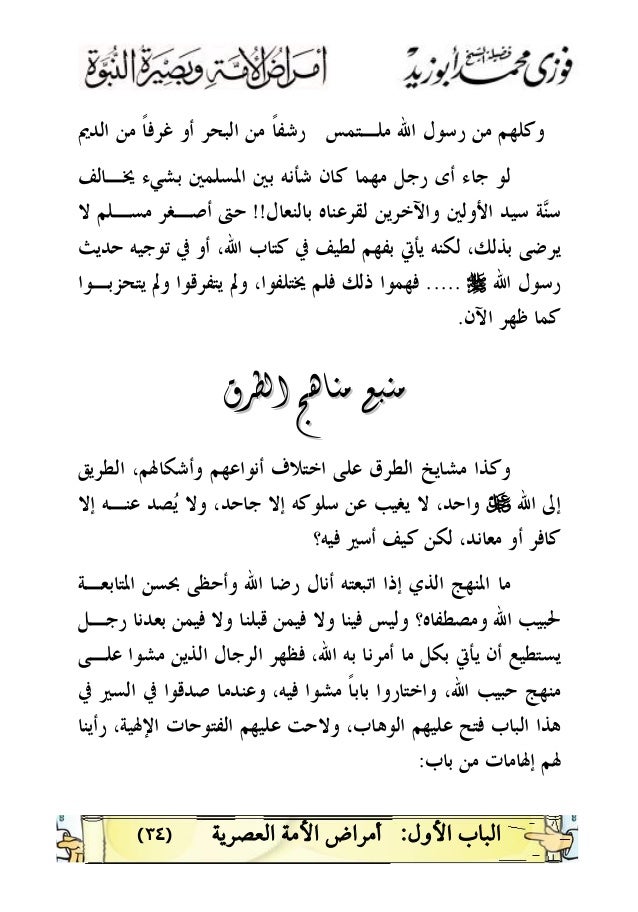 فضيلة الشيخ فوزى محمد أبوزيد أمراض الأمة وبصيرة النبوة
وكلهم من رسول الله ملـــتمس رشفاً من البحر أو غرفاً من الديم
لو جاء أى رجل مهما كان شأنه بين المسلمين بشيء يخـــالف
سنَّة سيد الأولين والآخرين لقرعناه بالنعال!! حتى أصـــغر مســـلم لا
يرضى بذلك، لكنه يأتي بفهم لطيف في كتاب الله، أو في توجيه حديث
رسول الله ﷺ ..... فهموا ذلك فلم يختلفوا، ولم يتفرقوا ولم يتحزبـــوا
كما ظهر الآن.
منبع مناهج الطرق
وكذا مشايخ الطرق على اختلاف أنواعهم وأشكالهم، الطريق
إلى الله واحد، لا يغيب عن سلوكه إلا جاحد، ولا يُصد عنـــه إلا
كافر أو معاند، لكن كيف أسير فيه؟
ما المنهج الذي إذا اتبعته أنال رضا الله وأحظى بحسن المتابعـــة
لحبيب الله ومصطفاه؟ وليس فينا ولا فيمن قبلنا ولا فيمن بعدنا رجـــل
يستطيع أن يأتي بكل ما أمرنا به الله، فظهر الرجال الذين مشوا علـــى
منهج حبيب الله، واختاروا باباً مشوا فيه، وعندما صدقوا في السير في
هذا الباب فتح عليهم الوهاب، ولاحت عليهم الفتوحات الإلهية، رأينا
لهم إلهامات من باب:
الباب الأول: أمراض الأمة العصرية (٣٤)